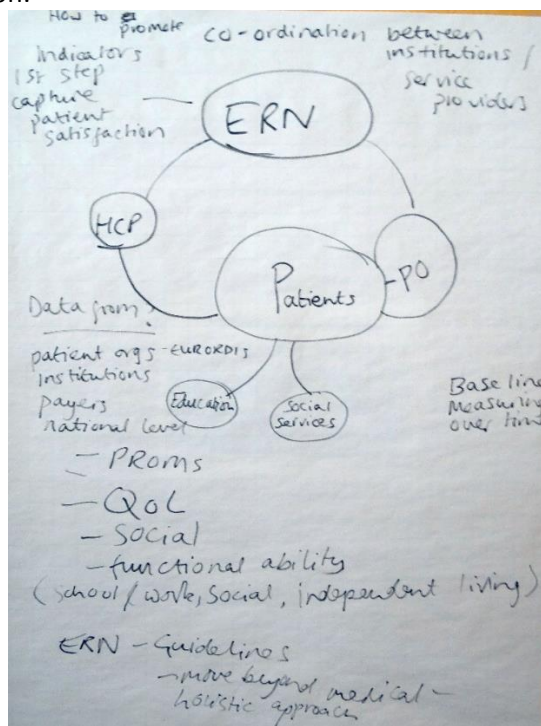 How to promote
co-ordination between
institutions /
service
providers
Indicators
1st step
capture
patient
satisfaction
ERN
HCP
Patients
PO
Data from:
patient orgs - EURORDIS
institutions
payers
national level
Education
Social
services
Baseline
Measuring
over time
- PROMs
- QoL
- Social
- functional ability
(school/work, Social, independent living)
ERN - Guidelines
- move beyond medical -
holistic approach